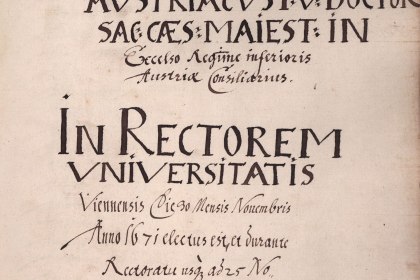 AUSTRIACUS I. U. DOCTOR
SAC: CÆS: MAIEST: IN
Excelso Regimine inferioris
Austriæ Consiliarius.
IN RECTOREM
UNIVERSITATIS
Viennensis Die 30 Mensis Novembris
Anno 1671 electus est, et durante
Rectoratu usq; ad 25 No.